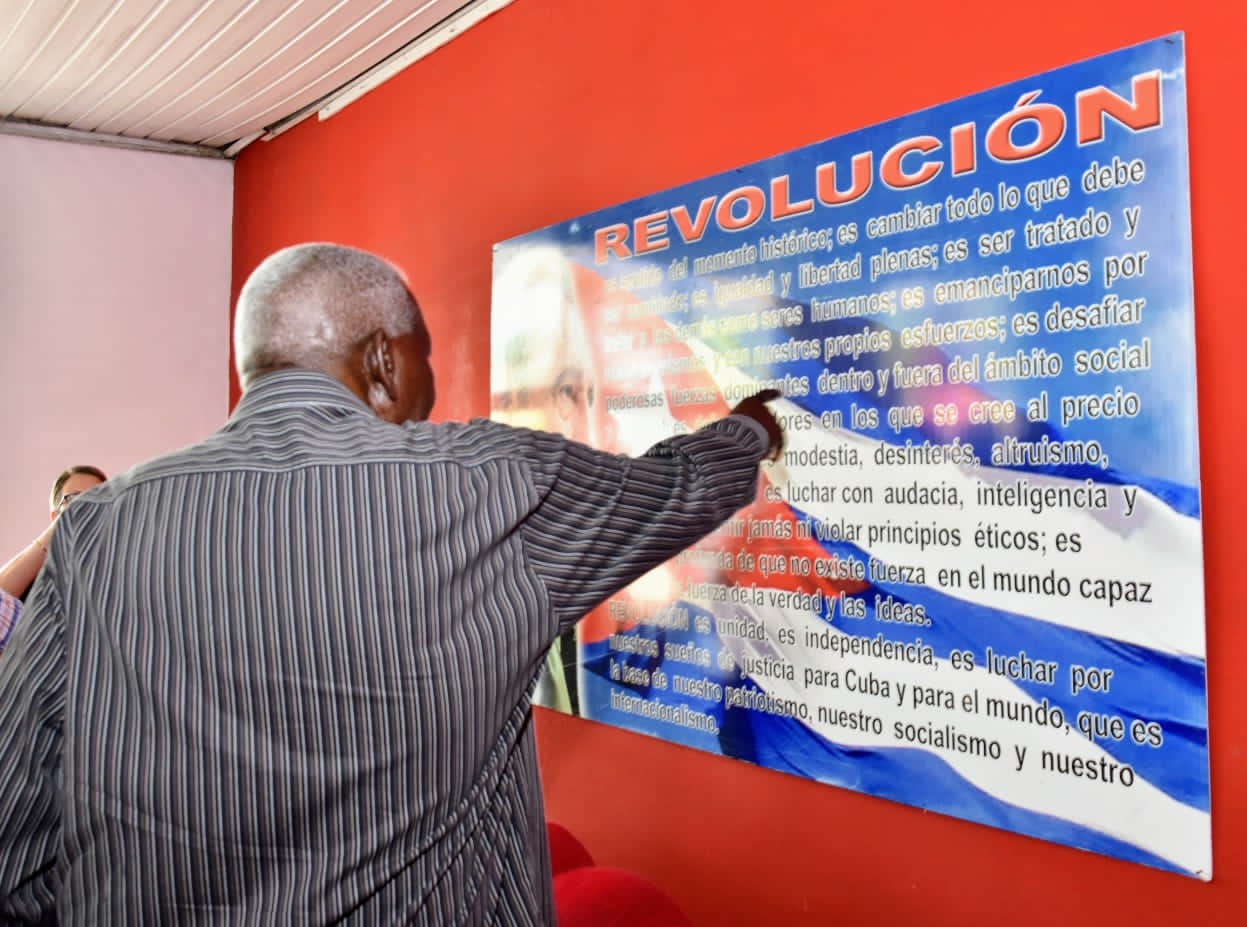 REVOLUCIÓN
es sentido del momento histórico; es cambiar todo lo que debe
ser cambiado; es igualdad y libertad plenas; es ser tratado y
demás como seres humanos; es emanciparnos por
nuestros propios esfuerzos; es desafiar
poderosas fuerzas dominantes dentro y fuera del ámbito social
ores en los que se cree al precio
modestia, desinterés, altruismo,
es luchar con audacia, inteligencia y
ir jamás ni violar principios éticos; es
profunda de que no existe fuerza en el mundo capaz
fuerza de la verdad y las ideas.
REVOLUCIÓN es unidad, es independencia, es luchar por
nuestros sueños de justicia para Cuba y para el mundo, que es
la base de nuestro patriotismo, nuestro socialismo y nuestro
internacionalismo.